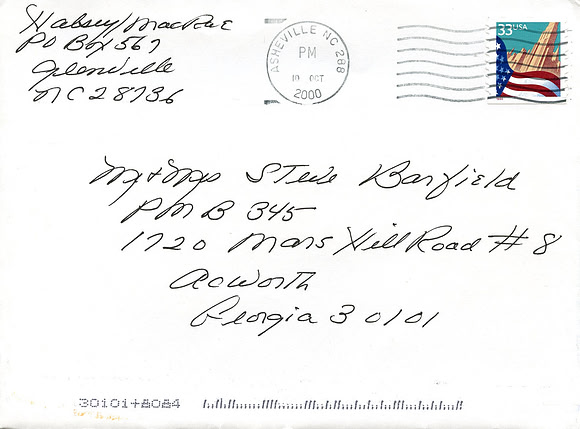 Halsey/MacRae
PO Box 567
Glenville
NC 28736
ASHEVILLE NC 288
PM
10 OCT
2000
33 USA
Mr + Mrs Steve Barfield
PMB 345
1720 Mars Hill Road # 8
Acworth
Georgia 30101
30101+8084